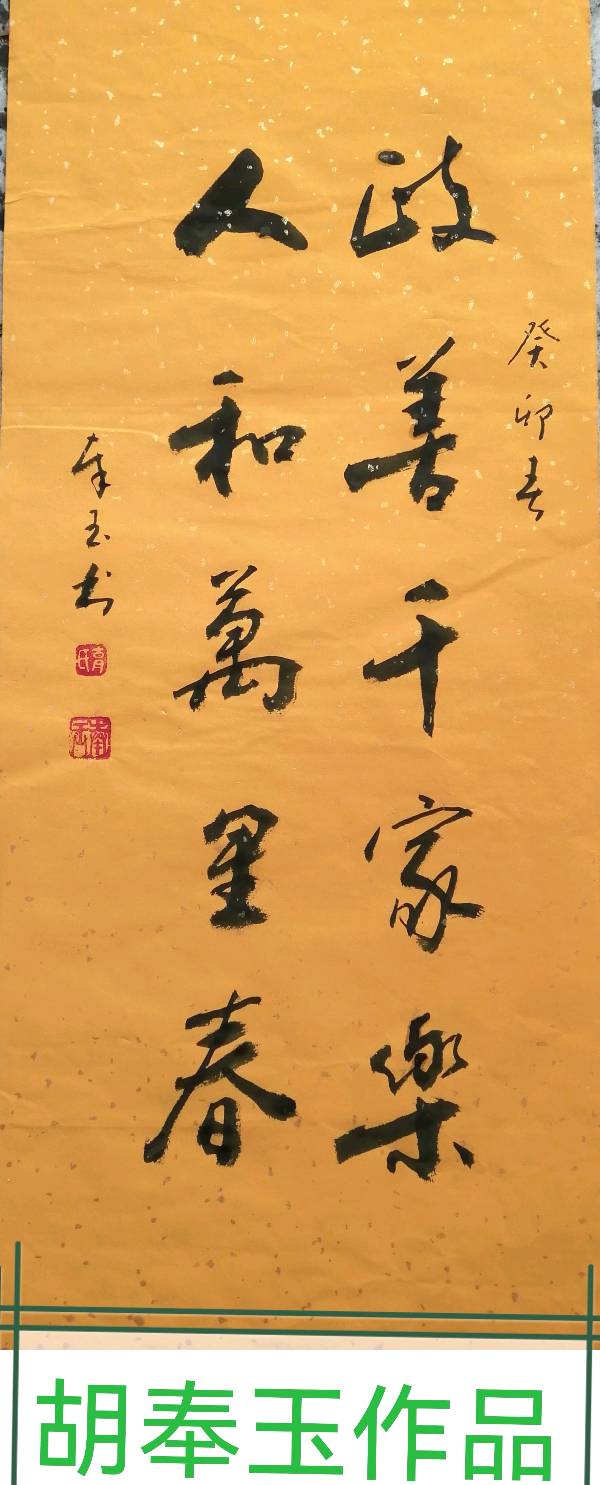 癸卯春
政善千家樂
人和萬里春
奉玉书
胡奉玉作品